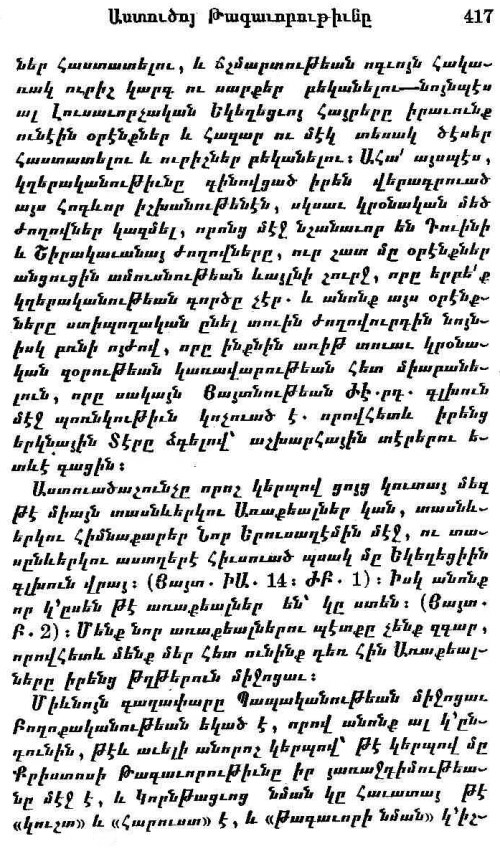 Աստուծոյ Թագաւորութիւնը 417
ներ հաստատելու, և ճշմարտութեան ոգւոյն հակա-
ռակ ուրիշ կարգ ու սարքեր բեկանելու—նոյնպէս
ալ Լուսաւորչական Եկեղեցւոյ Հայրերը իրաւունք
ունէին օրէնքներ և հազար ու մէկ տեսակ ծէսեր
հաստատելու և ուրիշներ բեկանելու։ Ահա՛ այսպէս,
կղերականութիւնը զինովցած իրեն վերագրուած
այս հոգևոր իշխանութենէն, սկսաւ կրօնական մեծ
ժողովներ կազմել, որոնց մէջ նշանաւոր են Դուինի
և Շիրակաւանայ ժողովները, ուր շատ մը օրէնքներ
անցուցին ամուսնութեան ևայլնի շուրջ, որը երբե՛ք
կղերականութեան գործը չէր. և անոնք այս օրէնք-
ները ստիպողական ընել տուին ժողովուրդին նոյն-
իսկ բռնի ոյժով, որը ինքնին առիթ տուաւ կրօնա-
կան զօրութեան կառավարութեան հետ միաբանե-
լուն, որը սակայն Յայտնութեան ԺԷ.րդ. գլխուն
մէջ պոռնկութիւն կոչուած է. որովհետև իրենց
երկնային Տէրը ձգելով՝ աշխարհային տէրերու ե-
տևէ գացին։
Աստուածաշունչը որոշ կերպով ցոյց կուտայ մեզ
թէ միայն տասներկու Առաքեալներ կան, տասնև-
երկու հիմնաքարեր նոր Երուսաղէմին մէջ, ու տա-
սըներկու աստղերէ հիւսուած պսակ մը Եկեղեցիին
գլխուն վրայ։ (Յայտ. ԻԱ. 14։ ԺԲ. 1)։ Իսկ անոնք
որ կ՚ըսեն թէ առաքեալներ են՝ կը ստեն։ (Յայտ.
Բ. 2)։ Մենք նոր առաքեալներու պէտքը չենք զգար,
որովհետև մենք մեր հետ ունինք դեռ հին Առաքեալ-
ները իրենց թղթերուն միջոցաւ։
Միևնոյն գաղափարը Պապականութեան միջոցաւ
Բողոքականութեան եկած է, որով անոնք ալ կ՚ըն-
դունին, թէև աւելի անորոշ կերպով՝ թէ կերպով մը
Քրիստոսի Թագաւորութիւնը իր յառաջդիմութեա-
նը մէջ է, և Կորնթացւոց նման կը հաւատայ թէ
«կուշտ» և «հարուստ» է, և «թագաւորի նման» կ՚իշ-